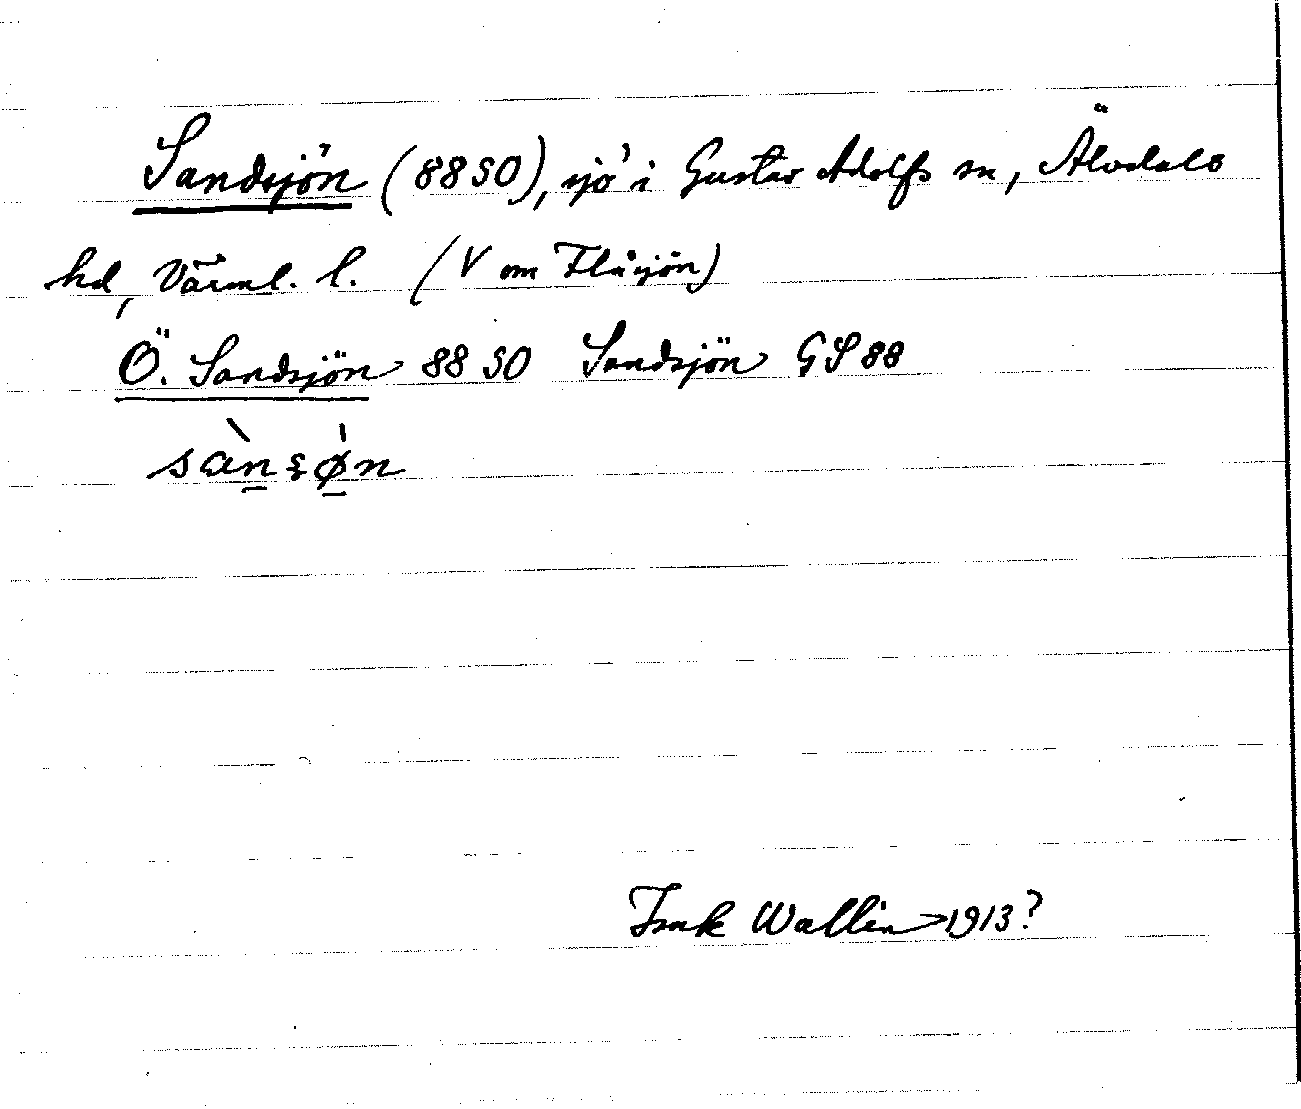 Sandsjön (88 SO), sjö i Gustav Adolfs sn, Älvdals
hd, Värml. l. (V om Flåsjön)
Ö. Sandsjön 88 SO Sandsjön GS 88
sànʂø̀n
Isak Wallin 1913?